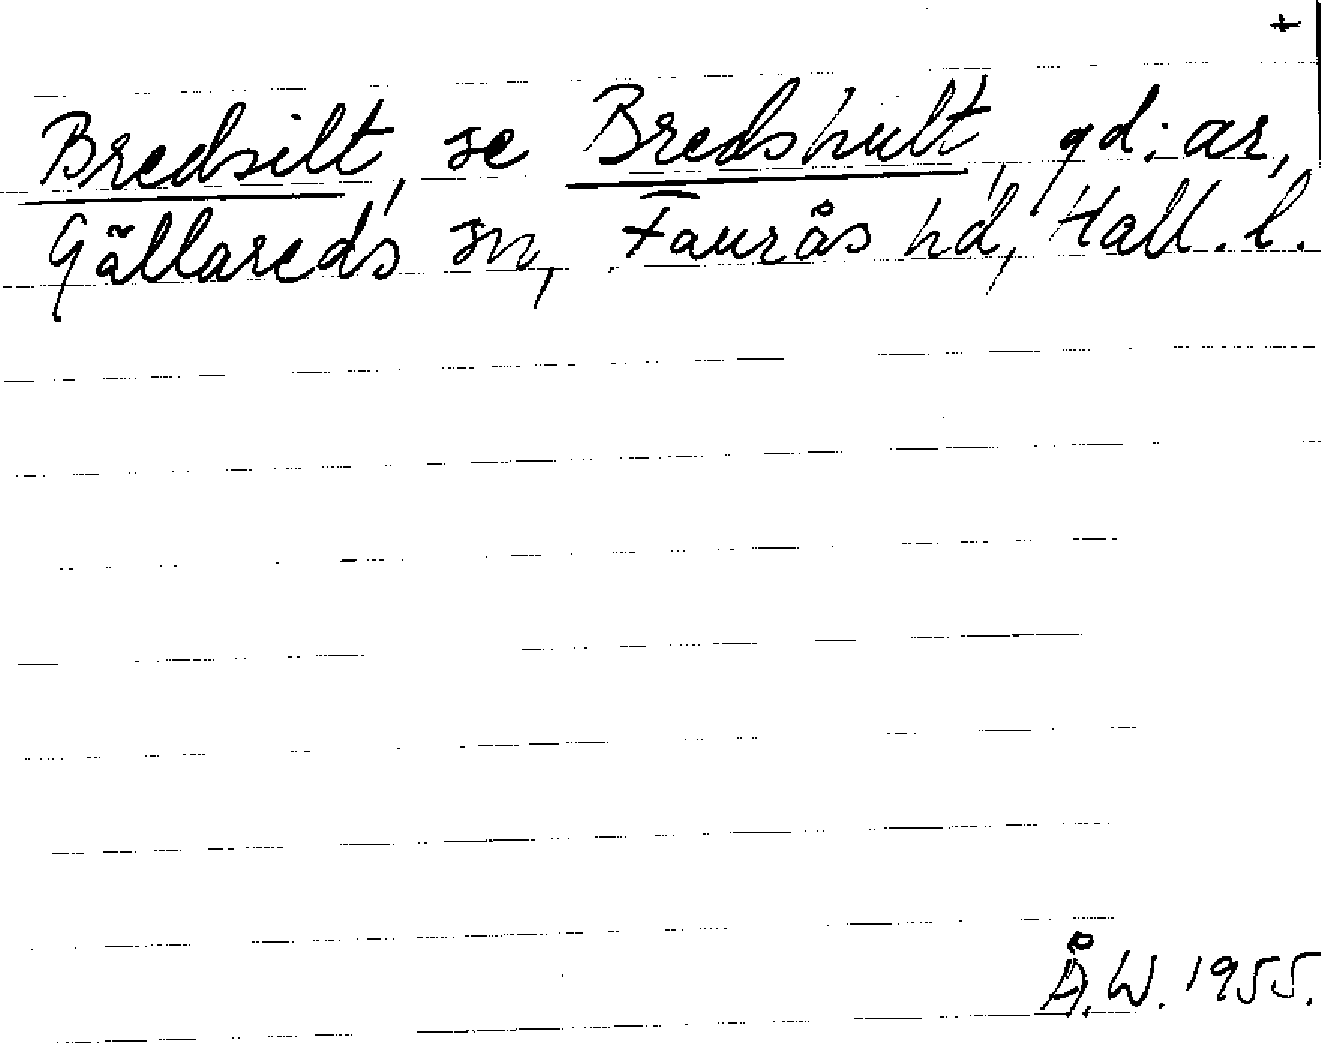 +
Bredsilt, se Bredshult, gd:ar,
Gällareds sn, Faurås hd, Hall. l.
Å.W. 1955.